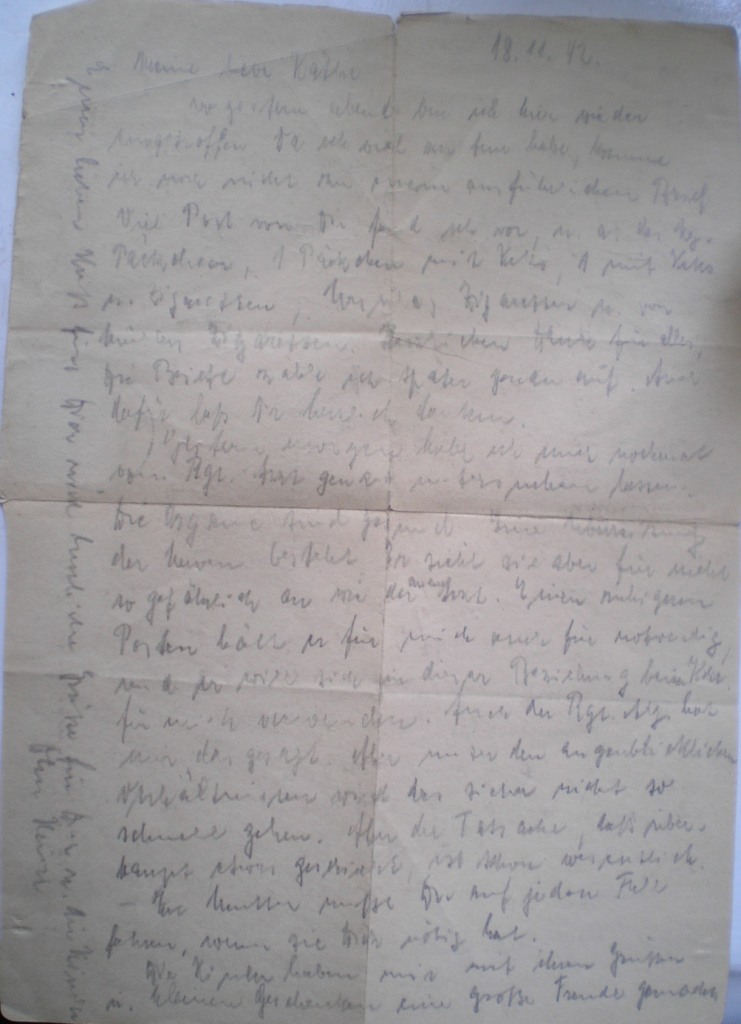 18.11.42.
Meine liebe Käthe
vorgestern abend bin ich hier wieder
eingetroffen. Da ich viel zu tun habe, komme
ich noch nicht zu einem ausführlichen Brief.
Viel Post von Dir fand ich vor, u. a. das
Päckchen, 1 Päckchen mit Keks, 1 mit Keks
u. Zigaretten, Zigaretten u. von
Zigaretten. Herzlichen Dank für alles,
die Briefe zähle ich später genau auf. Aber
dafür laß Dir herzlich danken.
Gestern morgen habe ich mich nochmal
vom Rgt. Arzt genau untersuchen lassen.
Die Organe sind gesund. Eine
der Nerven besteht. Er sieht sie aber für nicht
so gefährlich an wie der andere Arzt. Einen ruhigeren
Posten hält er für mich aber für notwendig,
und er will sich in dieser Beziehung beim Kdr.
für mich verwenden. Auch der Rgt. Adj. hat
mir das gesagt. Aber unter den augenblicklichen
Verhältnissen wird das sicher nicht so
schnell gehen. Aber die Tatsache, daß über-
haupt etwas geschieht, ist schon wesentlich.
– Zur Mutter mußt Du auf jeden Fall
fahren, wenn sie Dich nötig hat.
Die Kinder haben mir mit ihren Grüßen
u. kleinen Geschenken eine große Freude gemacht.
lieben Kuß für Dich und herzliche Grüße für Dich u. die Kinder